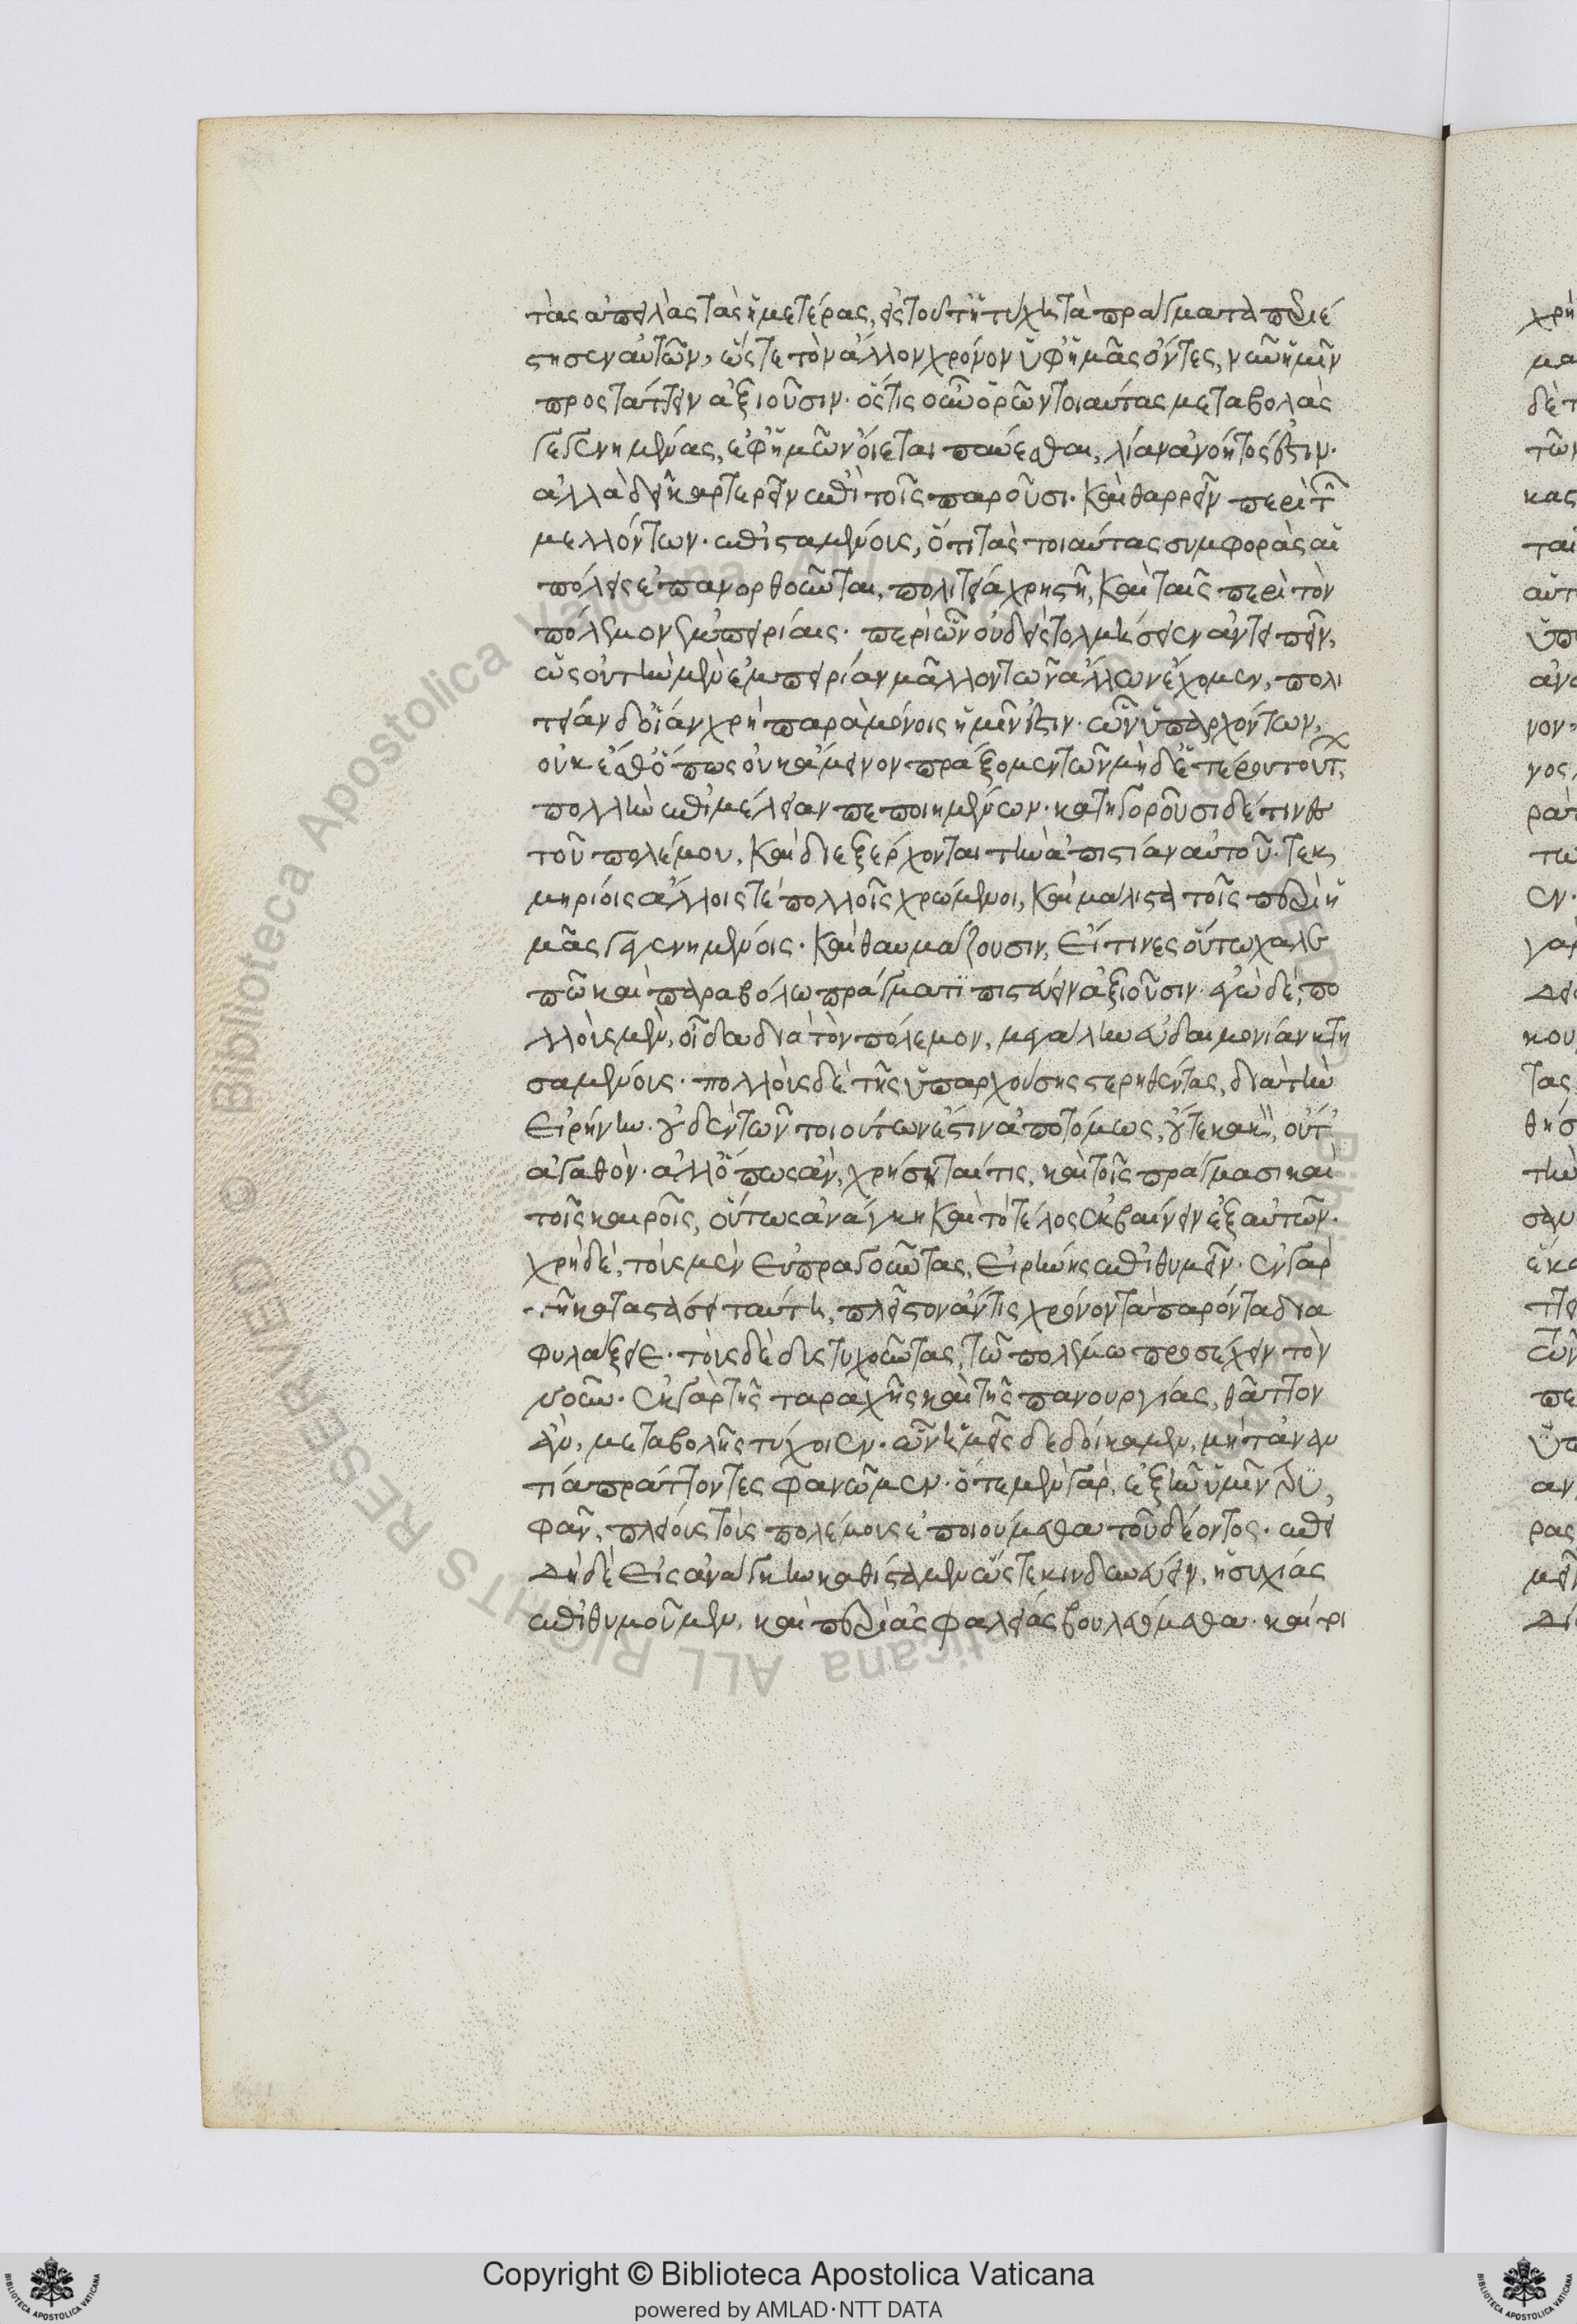 τὰς ἀπειλὰς τὰς ἡμετέρας, εἰς τοῦθ' ἡ τύχη τὰ πράγματα περιέ
στησεν αὐτῶν, ὥστε τὸν ἄλλον χρόνον ὑφ' ἡμᾶς ὄντες, νῦν ἡμῖν
προστάττειν ἀξιοῦσιν· ὅστις οὖν ὁρῶν τοιαύτας μεταβολὰς
γεγενημένας, ἐφ' ἡμῶν οἴεται παύεσθαι, λίαν ἀνόητός ἐστιν·
ἀλλὰ δεῖ καρτερεῖν ἐπὶ τοῖς παροῦσι· καὶ θαρρεῖν περὶ τῶν
μελλόντων· ἐπισταμένους, ὅτι τὰς τοιαύτας συμφορὰς αἱ
πόλεις ἐπανορθοῦνται, πολιτείᾳ χρηστῇ, καὶ ταῖς περὶ τὸν
πόλεμον ἐμπειρίαις· περὶ ὧν οὐδεὶς τολμήσειεν ἀντειπεῖν,
ὡς οὐ τὴν μὲν ἐμπειρίαν μᾶλλον τῶν ἄλλων ἔχομεν, πολι
τείαν δ' οἵαν χρὴ παρὰ μόνοις ἡμῖν ἐστιν· ὧν ὑπαρχόντων,
οὐκ ἔσθ' ὅπως οὐκ ἄμεινον πράξομεν τῶν μηδετέρου τούτ
πολλὴν ἐπιμέλειαν πεποιημένων· κατηγοροῦσι δέ τινες
τοῦ πολέμου, καὶ διεξέρχονται τὴν ἀπιστίαν αὐτοῦ· τεκ
μηρίοις ἄλλοις τε πολλοῖς χρώμενοι, καὶ μάλιστα τοῖς περὶ ἡ
μᾶς γεγενημένοις· καὶ θαυμάζουσιν, εἴ τινες οὕτω χαλε
πῷ καὶ παραβόλῳ πράγματι πιστεύειν ἀξιοῦσιν· ἐγὼ δὲ, πο
λλοὺς μὲν, οἶδα διὰ τὸν πόλεμον, μεγάλην εὐδαιμονίαν κτη
σαμένους· πολλοὺς δὲ τῆς ὑπαρχούσης στερηθέντας, διὰ τὴν
εἰρήνην· οὐδὲν τῶν τοιούτων ἐστὶν ἀποτόμως, οὔτε κακὸν, οὔτ'
ἀγαθόν· ἀλλ' ὅπως ἂν, χρήσηταί τις, καὶ τοῖς πράγμασι καὶ
τοῖς καιροῖς, οὕτως ἀνάγκη καὶ τὸ τέλος ἐκβαίνειν ἐξ αὐτῶν·
χρὴ δὲ, τοὺς μὲν εὐπραγοῦντας, εἰρήνης ἐπιθυμεῖν· ἐν γὰρ
τῇ καταστάσει ταύτῃ, πλεῖστον ἄν τις χρόνον τὰ παρόντα δια
φυλάξειε· τοὺς δὲ δυστυχοῦντας, τῷ πολέμῳ προσέχειν τὸν
νοῦν· ἐκ γὰρ τῆς ταραχῆς καὶ τῆς πανουργίας, θᾶττον
ἂν, μεταβολῆς τύχοιεν· ὧν ἡμεῖς δεδοίκαμεν, μὴ τἀναν
τία πράττοντες φανῶμεν· ὅτε μὲν γὰρ, ἐξῆν ὑμῖν τρυ
φᾶν, πλείους τοὺς πολέμους ἐποιούμεθα τοῦ δέοντος· ἐπει
δὴ δὲ εἰς ἀνάγκην καθέσταμεν ὥστε κινδυνεύειν, ἡσυχίας
ἐπιθυμοῦμεν, καὶ περὶ ἀσφαλείας βουλευόμεθα· καίτοι
Copyright © Biblioteca Apostolica Vaticana
powered by AMLAD·NTT DATA